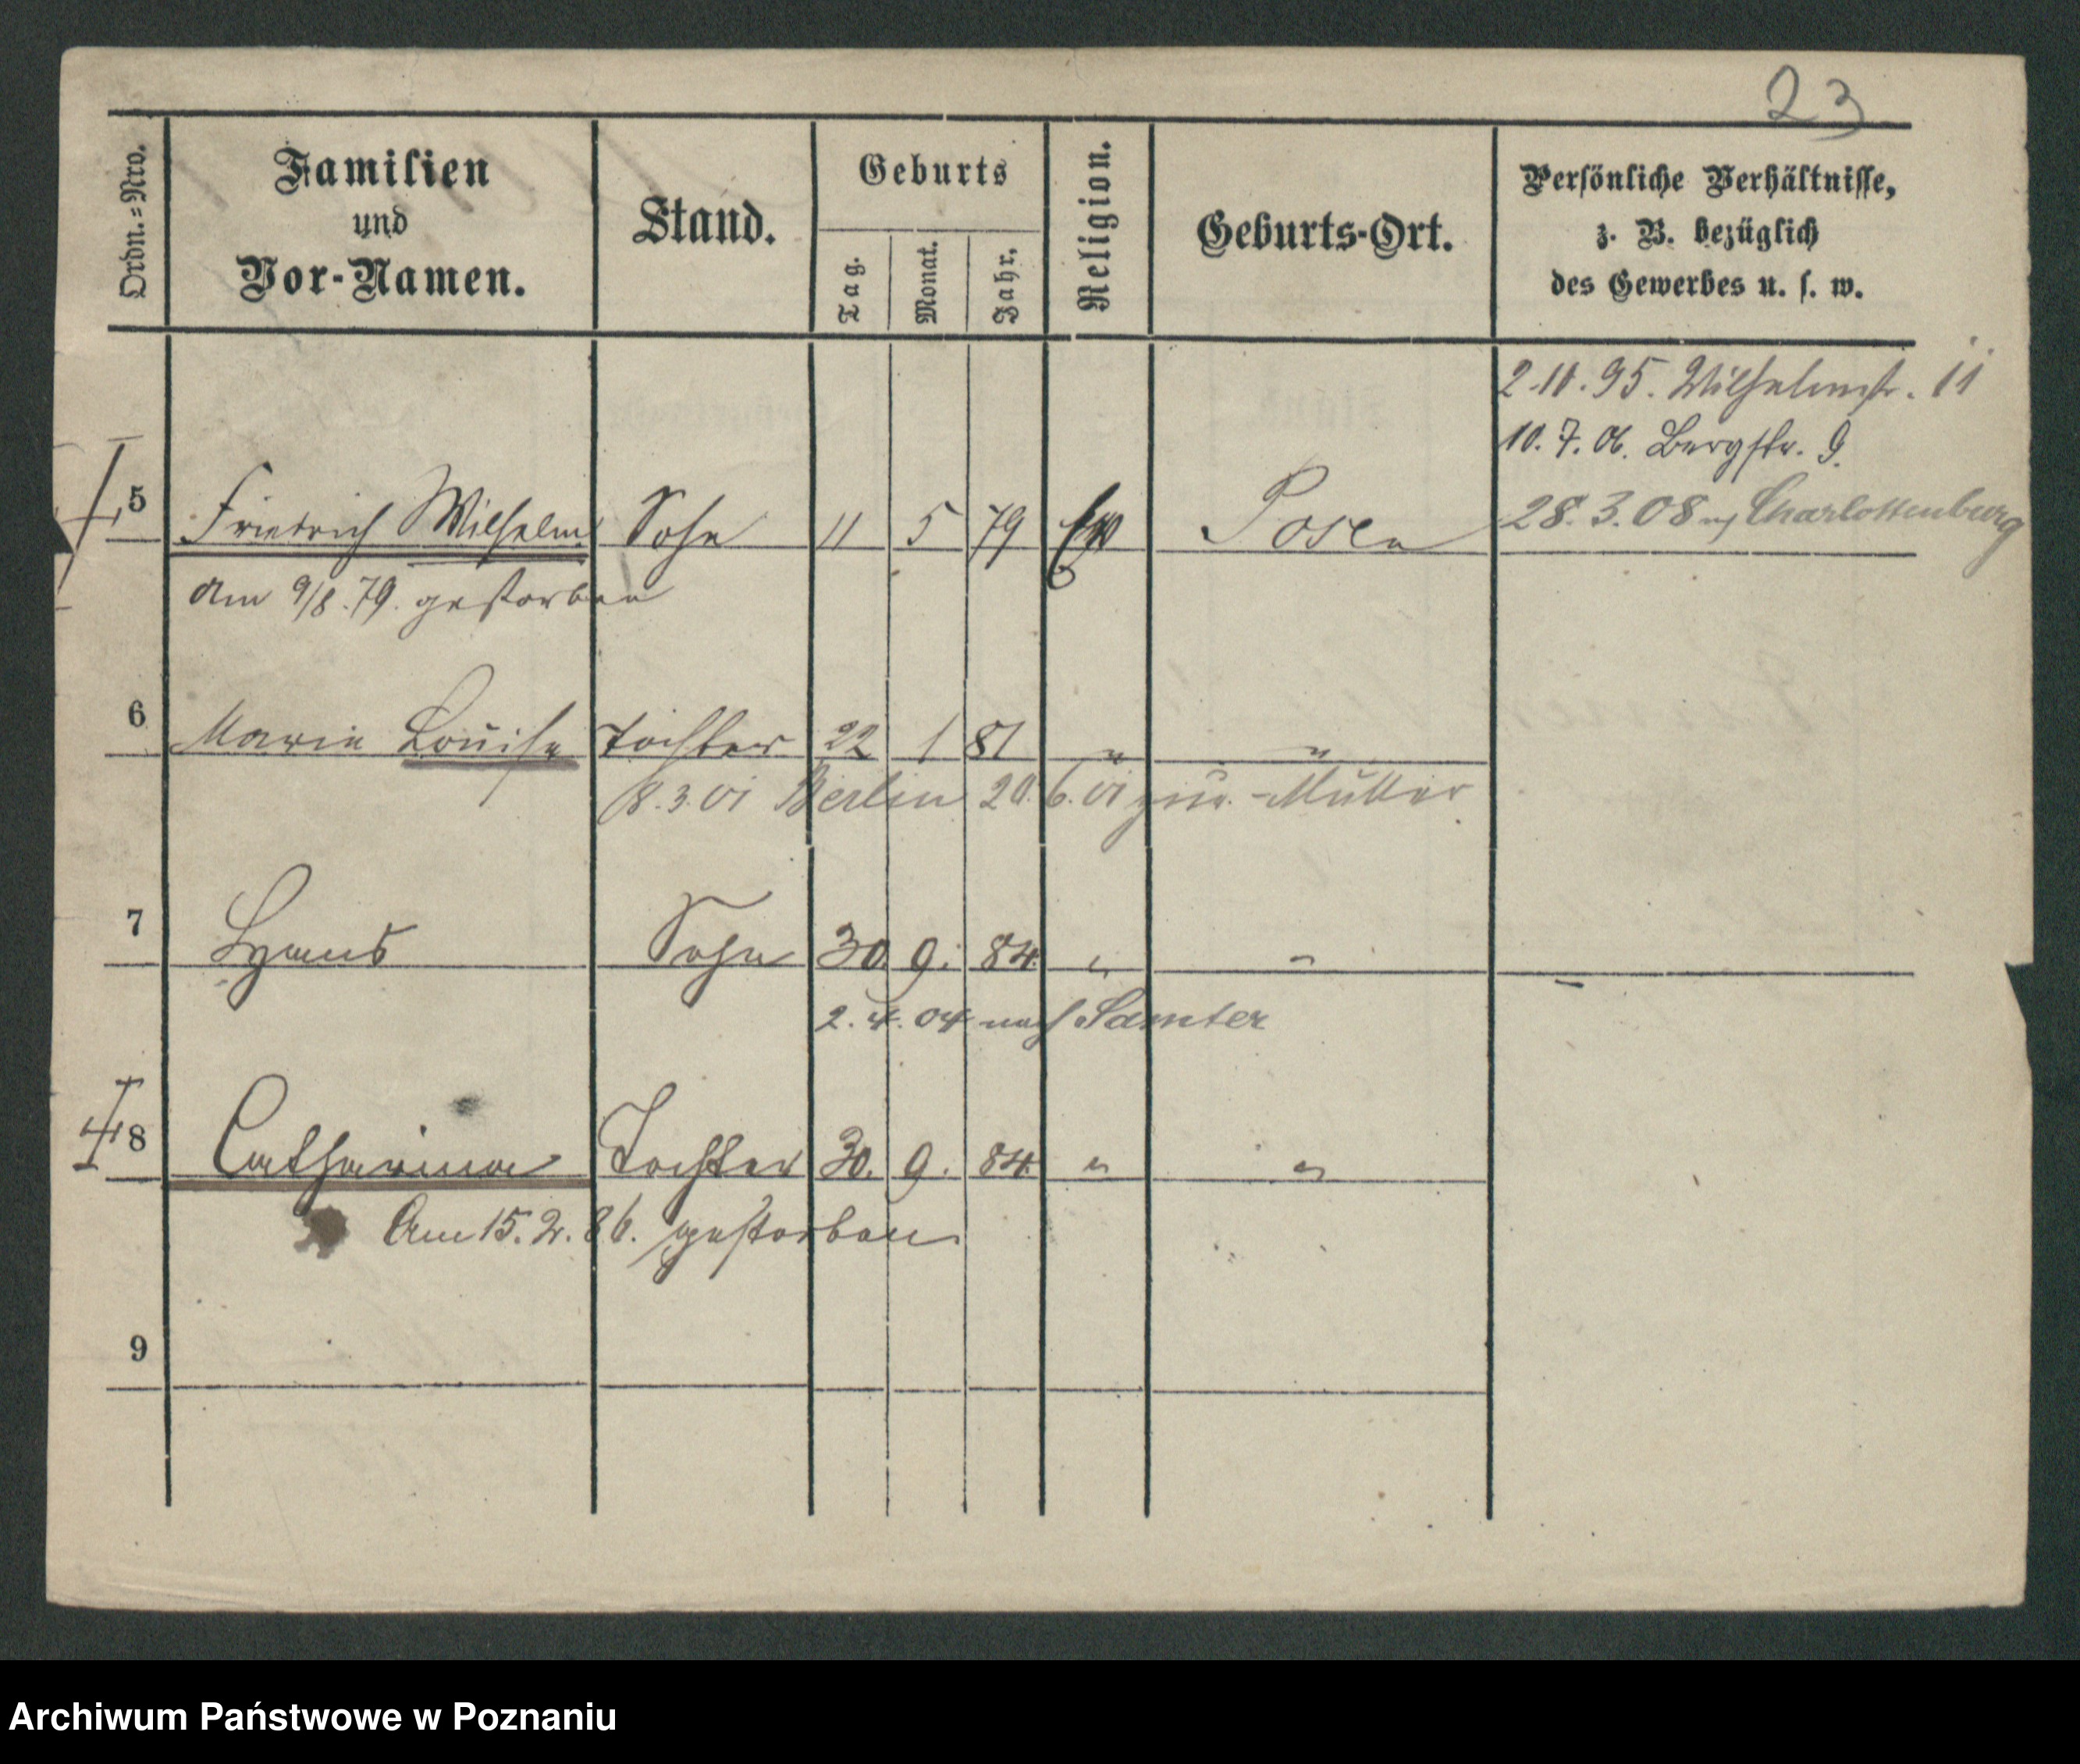 23
Ordn.=Nro.
Familien
und
Vor-Namen.
Stand.
Geburts
Tag.
Monat.
Jahr.
Religion.
Geburts-Ort.
Persönliche Verhältnisse,
z. B. bezüglich
des Gewerbes u. s. w.
2.11.95. Wilhelmstr. 11
10.7.06. Bergstr. 9.
28.3.08 n/ Charlottenburg
5 Friedrich Wilhelm Sohn 11 5 79 Ev Posen
Am 9/8.79. gestorben
6 Marie Louise Tochter 22 1 81 " "
8.3.01 Berlin 20.6.01 zur Mutter
7 Sohn 30. 9. 84. " "
2.4.04 nach Samter
8 Catharina Tochter 30. 9. 84. " "
Am 15.2.86. gestorben
9
Archiwum Państwowe w Poznaniu